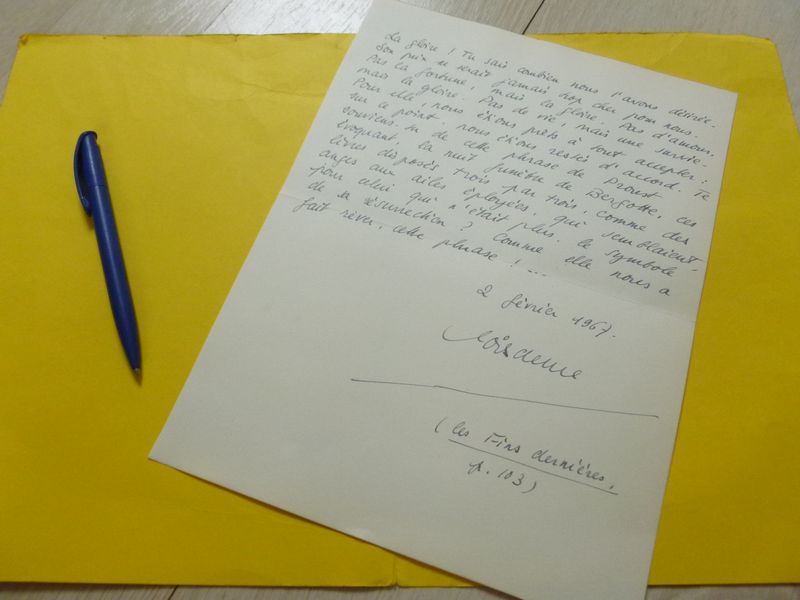 La gloire ! Tu sais combien nous l'avons désirée.
Son prix ne serait jamais trop cher pour nous.
Pas la fortune, mais la gloire. Pas d'amour,
mais la gloire. Pas de vie, mais une survie.
Pour elle, nous étions prêts à tout accepter :
sur ce point, nous étions restés d'accord. Te
souviens-tu de cette phrase de Proust
évoquant, la nuit funèbre de Bergotte, ces
livres disposés trois par trois, comme des
anges aux ailes éployées, qui semblaient,
pour celui qui n'était plus, le symbole
de sa résurrection ? Comme elle nous a
fait rêver, cette phrase ! ...
2 février 1967.
(Les Fins dernières,
p. 103)